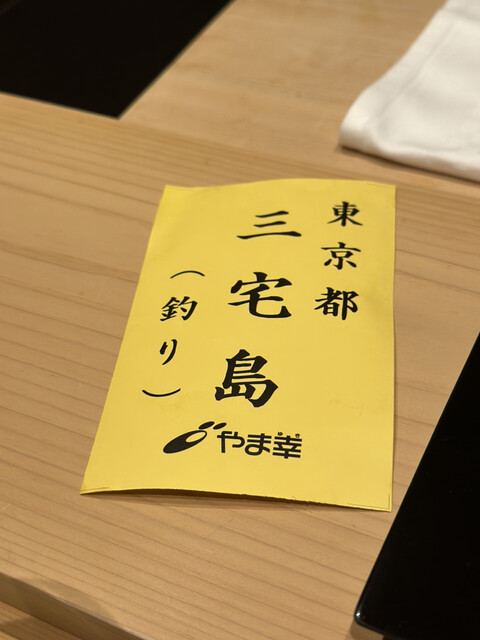 東京都
三宅島
（釣り）
やま幸